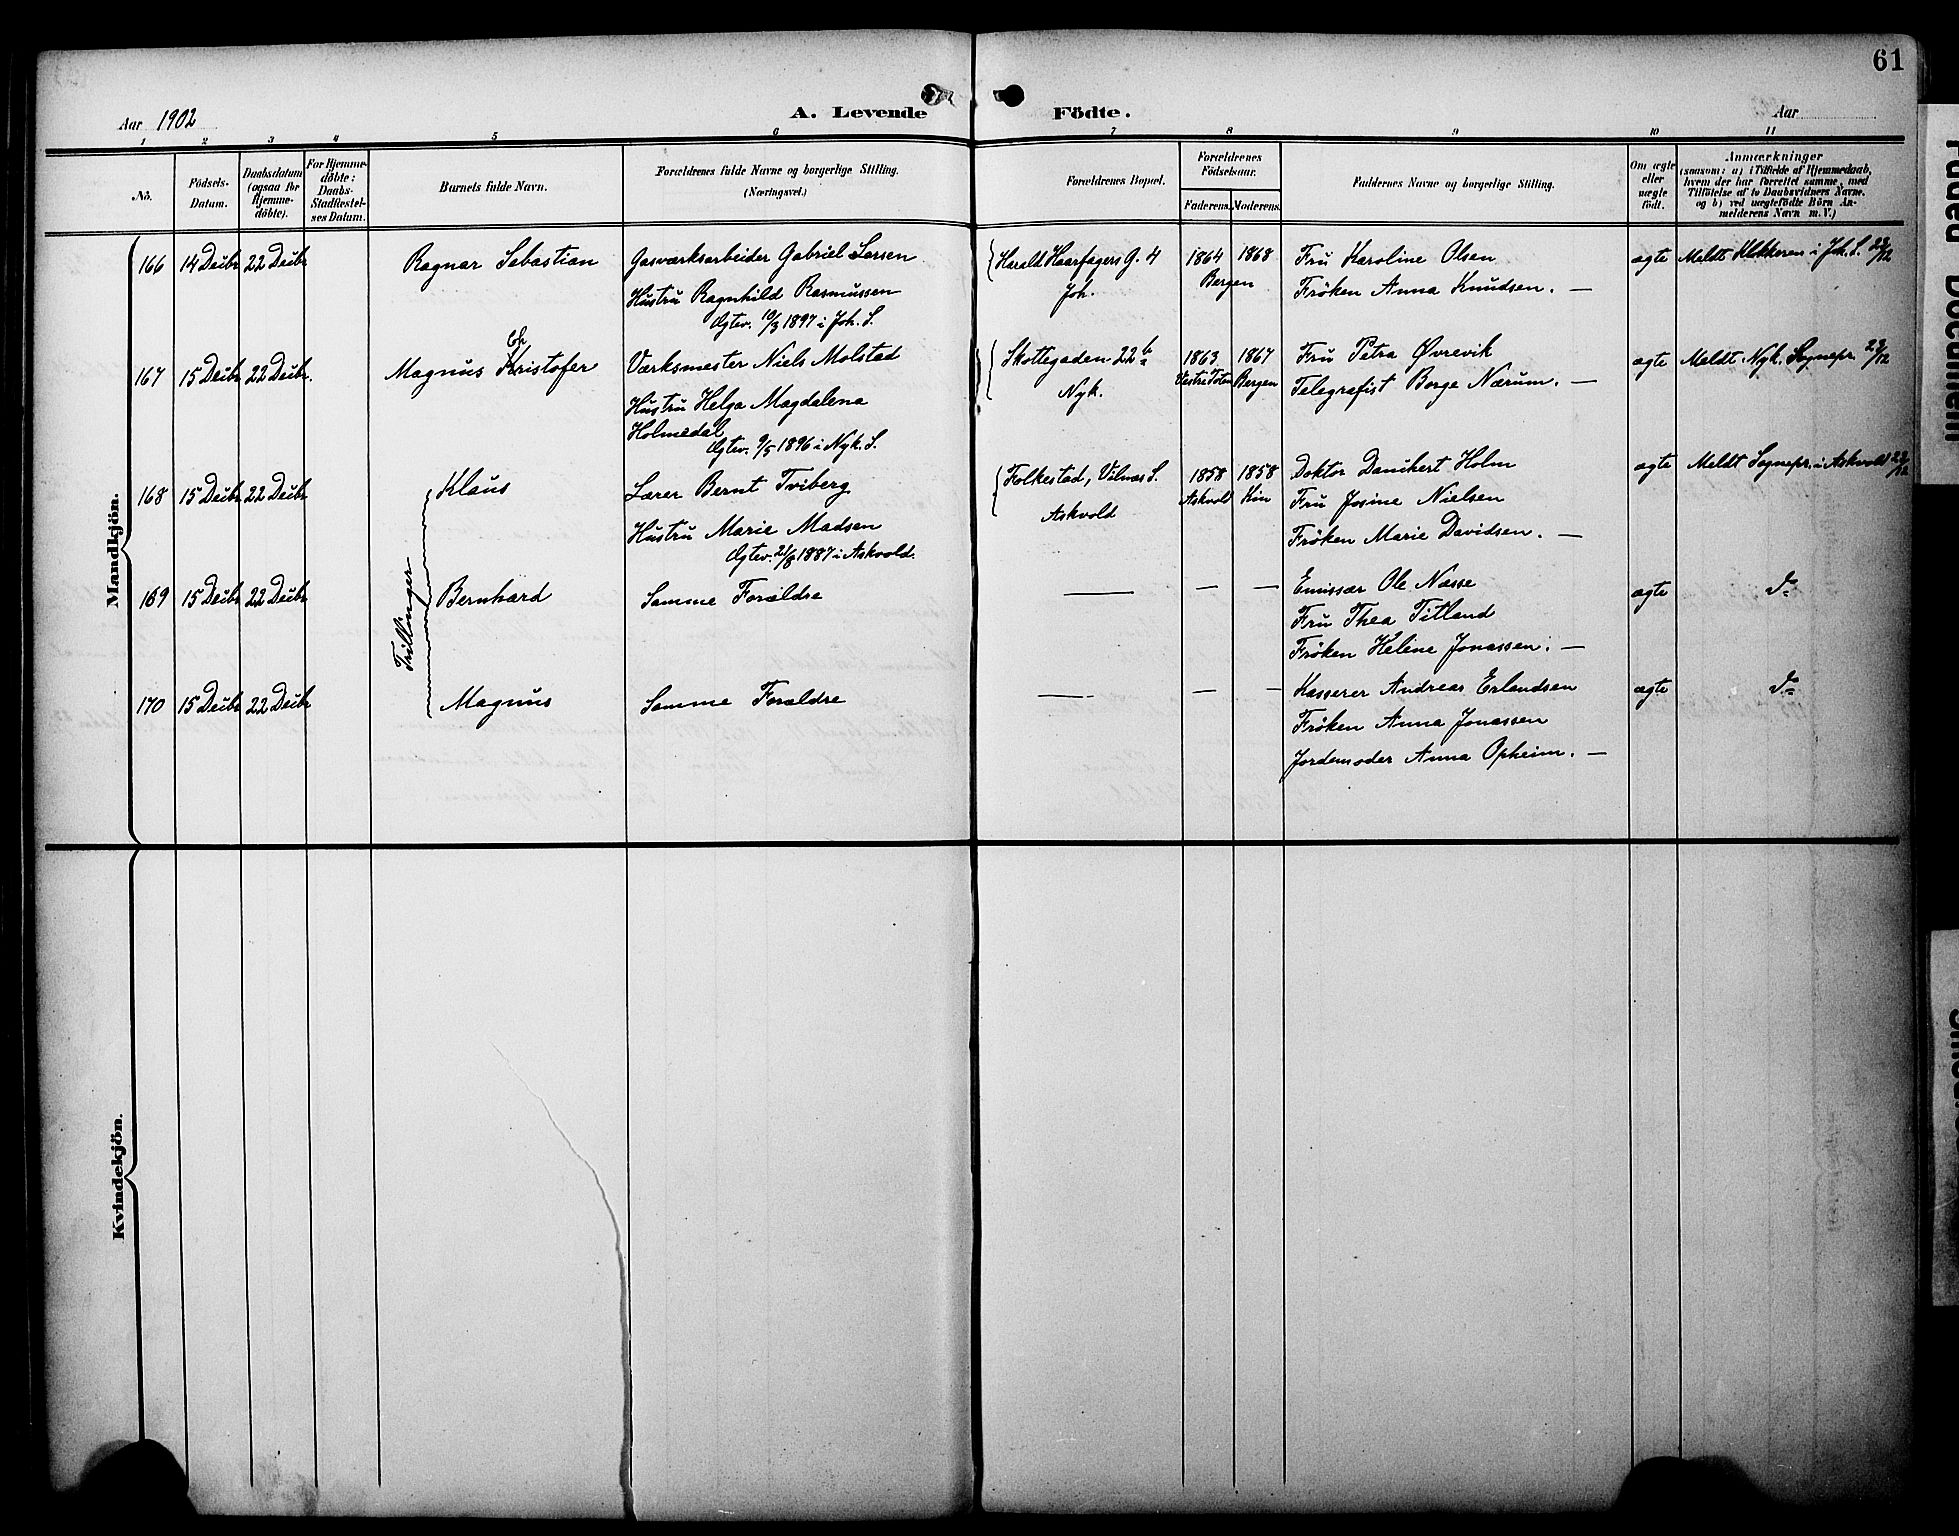 61
Aar 1902
A. Levende Födte.
Aar
1 2 3 4 5 6 7 8 9 10 11
No.
Födsels-Datum.
Daabsdatum (ogsaa for Hjemme-döbte).
For Hjemme-döbte: Daabs-Stadfæstel-ses Datum.
Barnets fulde Navn.
Forældrenes fulde Navne og borgerlige Stilling.
(Næringsvei.)
Forældrenes Bopæl.
Forældrenes Födselsaar.
Faderens. Moderens.
Faddernes Navne og borgerlige Stilling.
Om ægte eller uægte födt.
Anmærkninger
(saasom: a) i Tilfælde af Hjemmedaab, hvem der har forrettet samme, med Tilföielse af to Daabsvidners Navne, og b) ved uægtefödte Börn An-melderens Navn m. V.)
Mandkjön.
166 14 Decbr 22 Decbr Ragnar Sebastian Gasværksarbeider Gabriel Larsen Harald Haarfagers G. 4 1864 1868 Fru Karoline Olsen ægte Meldt Klokkeren i Joh. S. 23/12
Hustru Ragnhild Rasmussen Joh. Bergen Fröken Anna Knudsen. —
Ægtev. 10/3 1897 i Joh. S.
167 15 Decbr 22 Decbr. Magnus Kristofer Værksmester Niels Molstad Skottegaden 22 b 1863 1867 Fru Petra Øvrevik ægte Meldt Nyk. Sognepr. 23/12
Ch
Hustru Helga Magdalena Nyk. Vestre Toten Bergen Telegrafist Borge Nærum. —
Holmedal
Ægtev. 9/5 1896 i Nyk. S.
168 15 Decbr 22 Decbr Klaus Lærer Bernt Tviberg Folkestad, Vilnæs S. 1858 1858 Doktor Danckert Holm ægte Meldt Sognepr. i Askvold 23/12
Askvold Askvold Kin Fru Josine Nielsen
Hustru Marie Madsen Fröken Marie Davidsen. —
Ægtev. 21/8 1887 i Askvold.
Trillinger
169 15 Decbr 22 Decbr Bernhard Samme Forældre — — — Emissær Ole Næsse ægte do
Fru Thea Titland
Fröken Helene Jonassen. —
170 15 Decbr 22 Decbr Magnus Samme Forældre — — — Kasserer Andreas Erlandsen ægte do
Fröken Anna Jonassen
Jordemoder Anna Opheim. —
Kvindekjön.
Faded Document